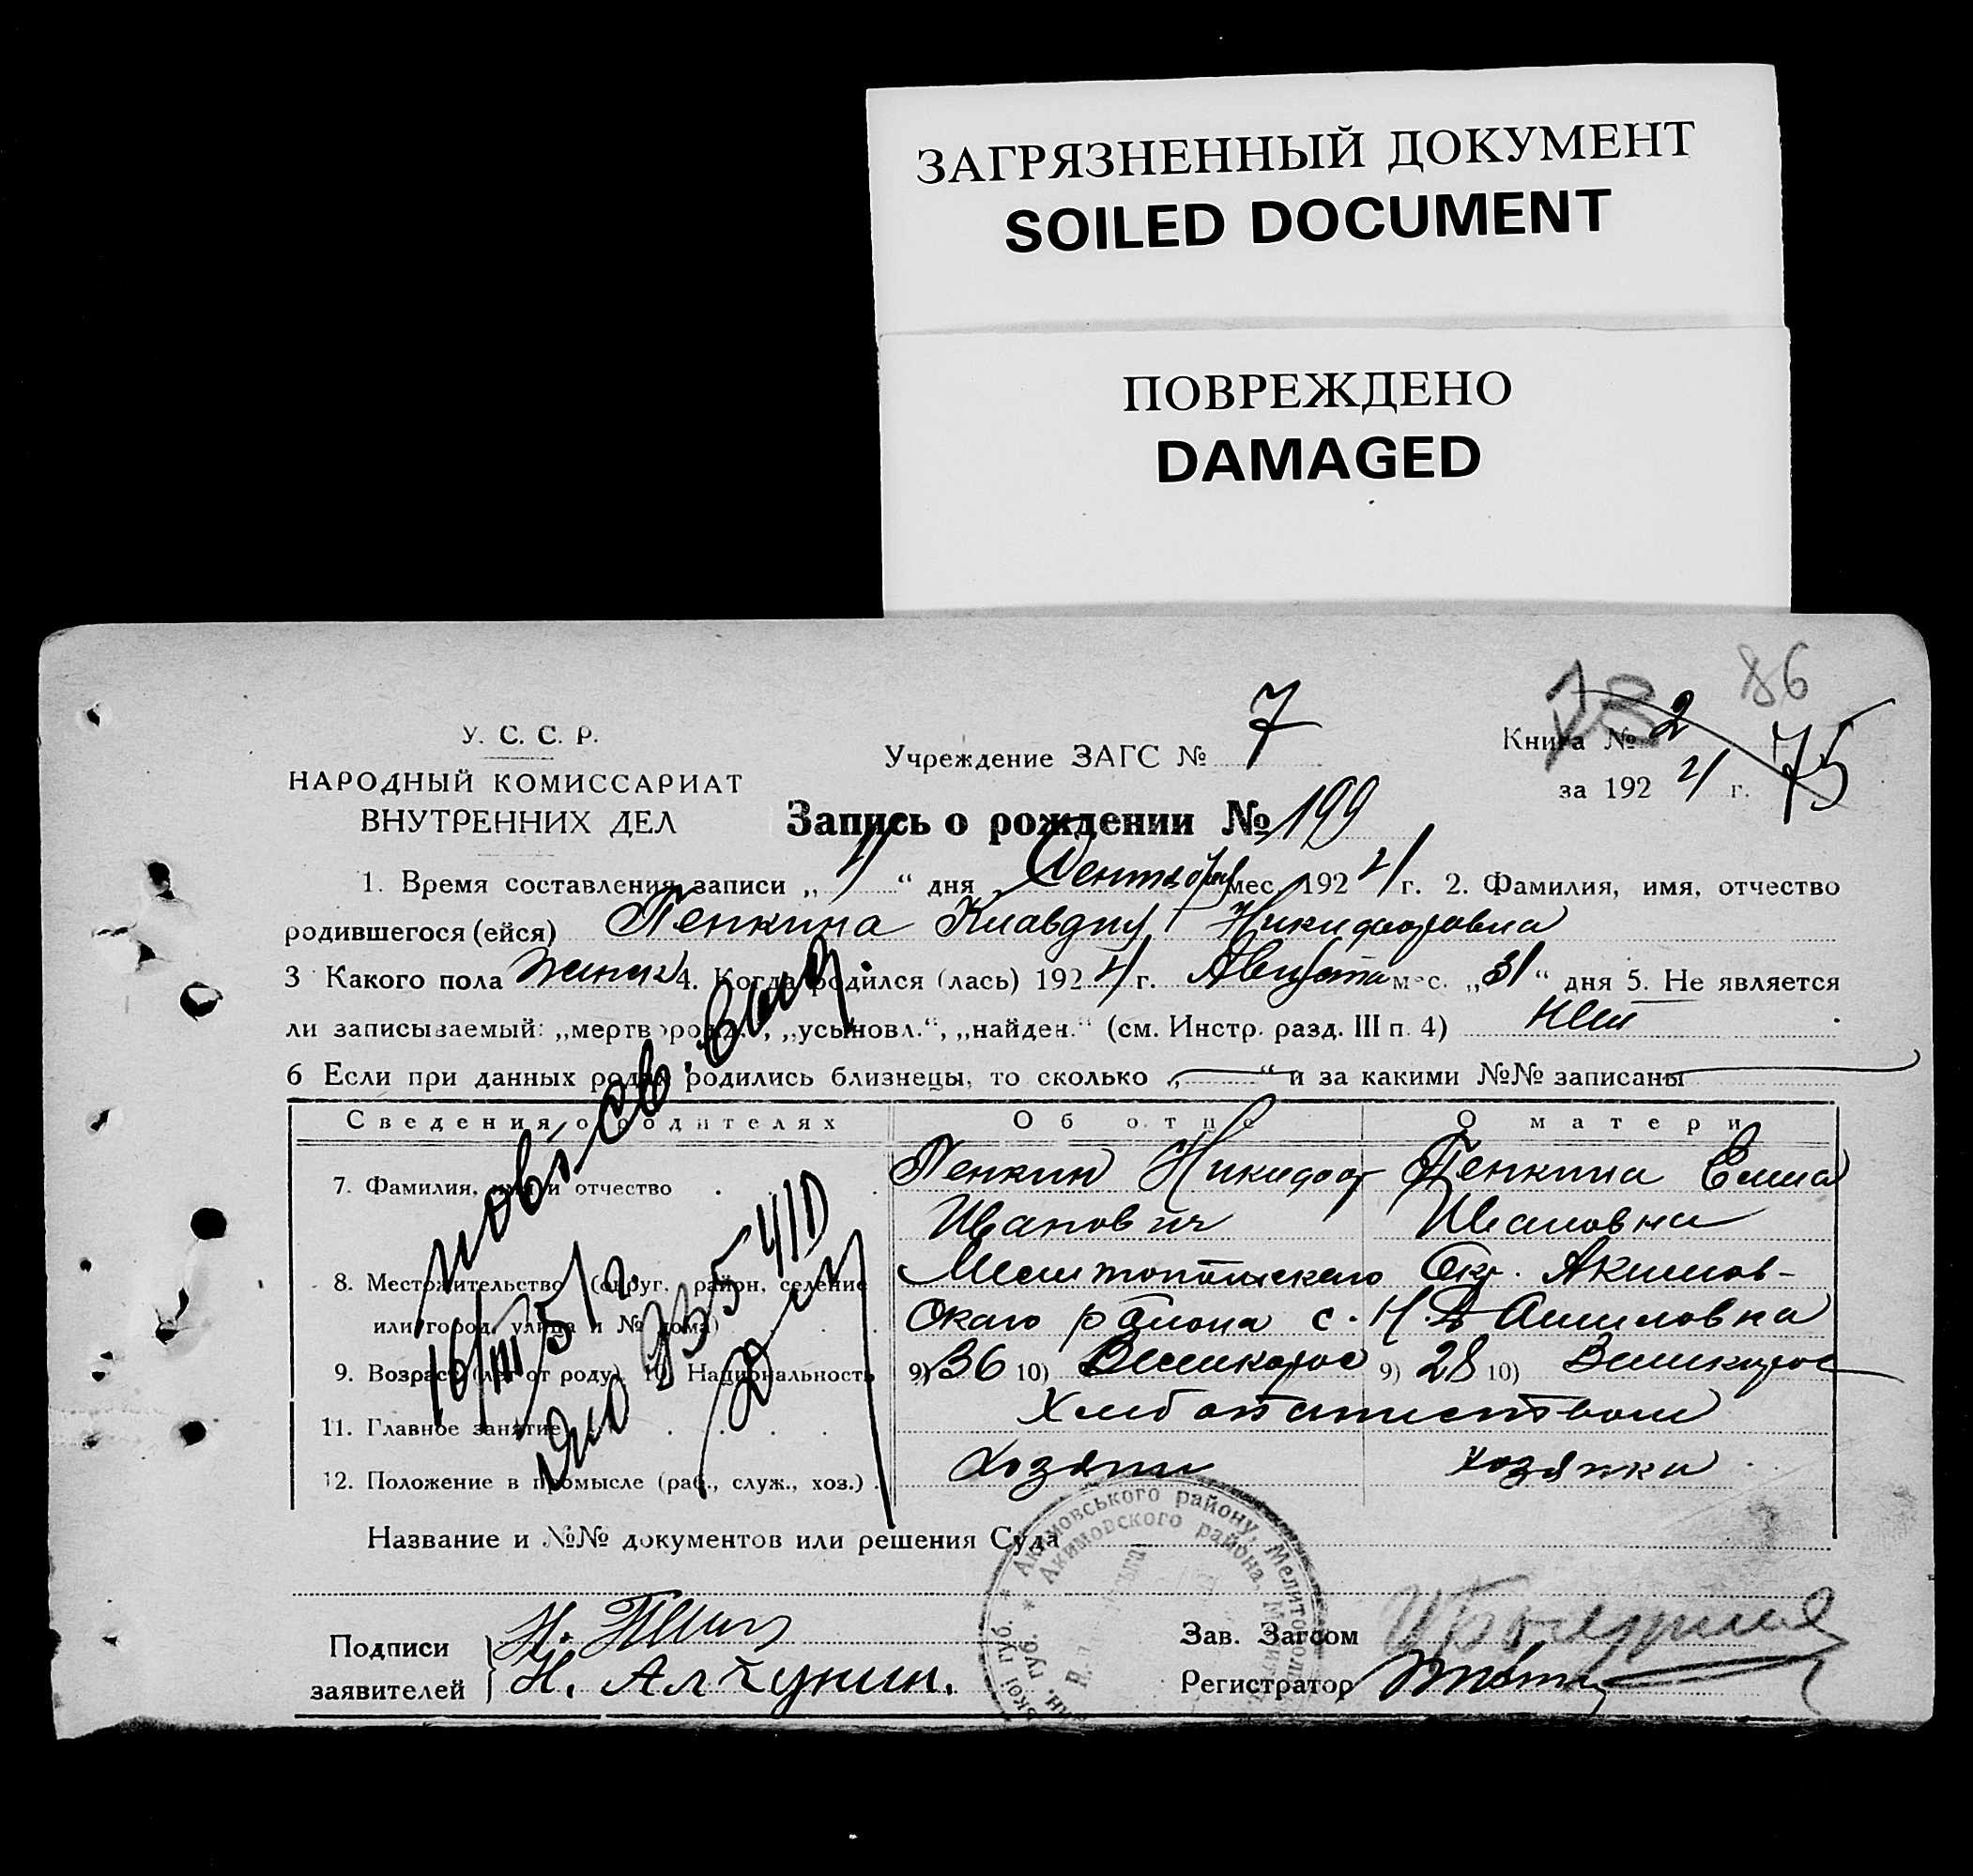 ЗАГРЯЗНЕННЫЙ ДОКУМЕНТ
SOILED DOCUMENT
ПОВРЕЖДЕНО
DAMAGED
86
75
У. С. С. Р.
НАРОДНЫЙ КОМИССАРИАТ
ВНУТРЕННИХ ДЕЛ
Учреждение ЗАГС № 7
Книга № 2
за 1924 г.
Запись о рождении № 199
1. Время составления записи „4“ дня Сентября мес. 1924 г. 2. Фамилия, имя, отчество
родившегося (ейся) Пенкина Клавдия Никифоровна
3 Какого пола женск 4. Когда родился (лась) 1924 г. Августа мес. „31“ дня 5. Не является
ли записываемый: „мертворожд.“, „усыновл.“, „найден.“ (см. Инстр. разд. III п. 4) нет
6 Если при данных родах родились близнецы, то сколько „ “ и за какими №№ записаны
Сведения о родителях Об отце О матери
7. Фамилия, имя и отчество Пенкин Никифор Пенкина Елена
Иванович Ивановна
8. Местожительство (округ, район, селение Мелитопольского Окр. Акимов-
или город, улица и № дома) ского района с. Н. Даниловка
9. Возраст (лет от роду) 10) Национальность 9) 36 10) Великорос 9) 28 10) Великорос
11. Главное занятие Хлебопашеством
12. Положение в промысле (раб., служ., хоз.) Хозяин хозяйка
повт. св. выд.
16/III 51 г.
Название и №№ документов или решения Суда
Акимовського району, Мелитопол
Акимовского района, Мелит
Подписи
заявителей
Н. Алхунин.
Зав. Загсом
Регистратор